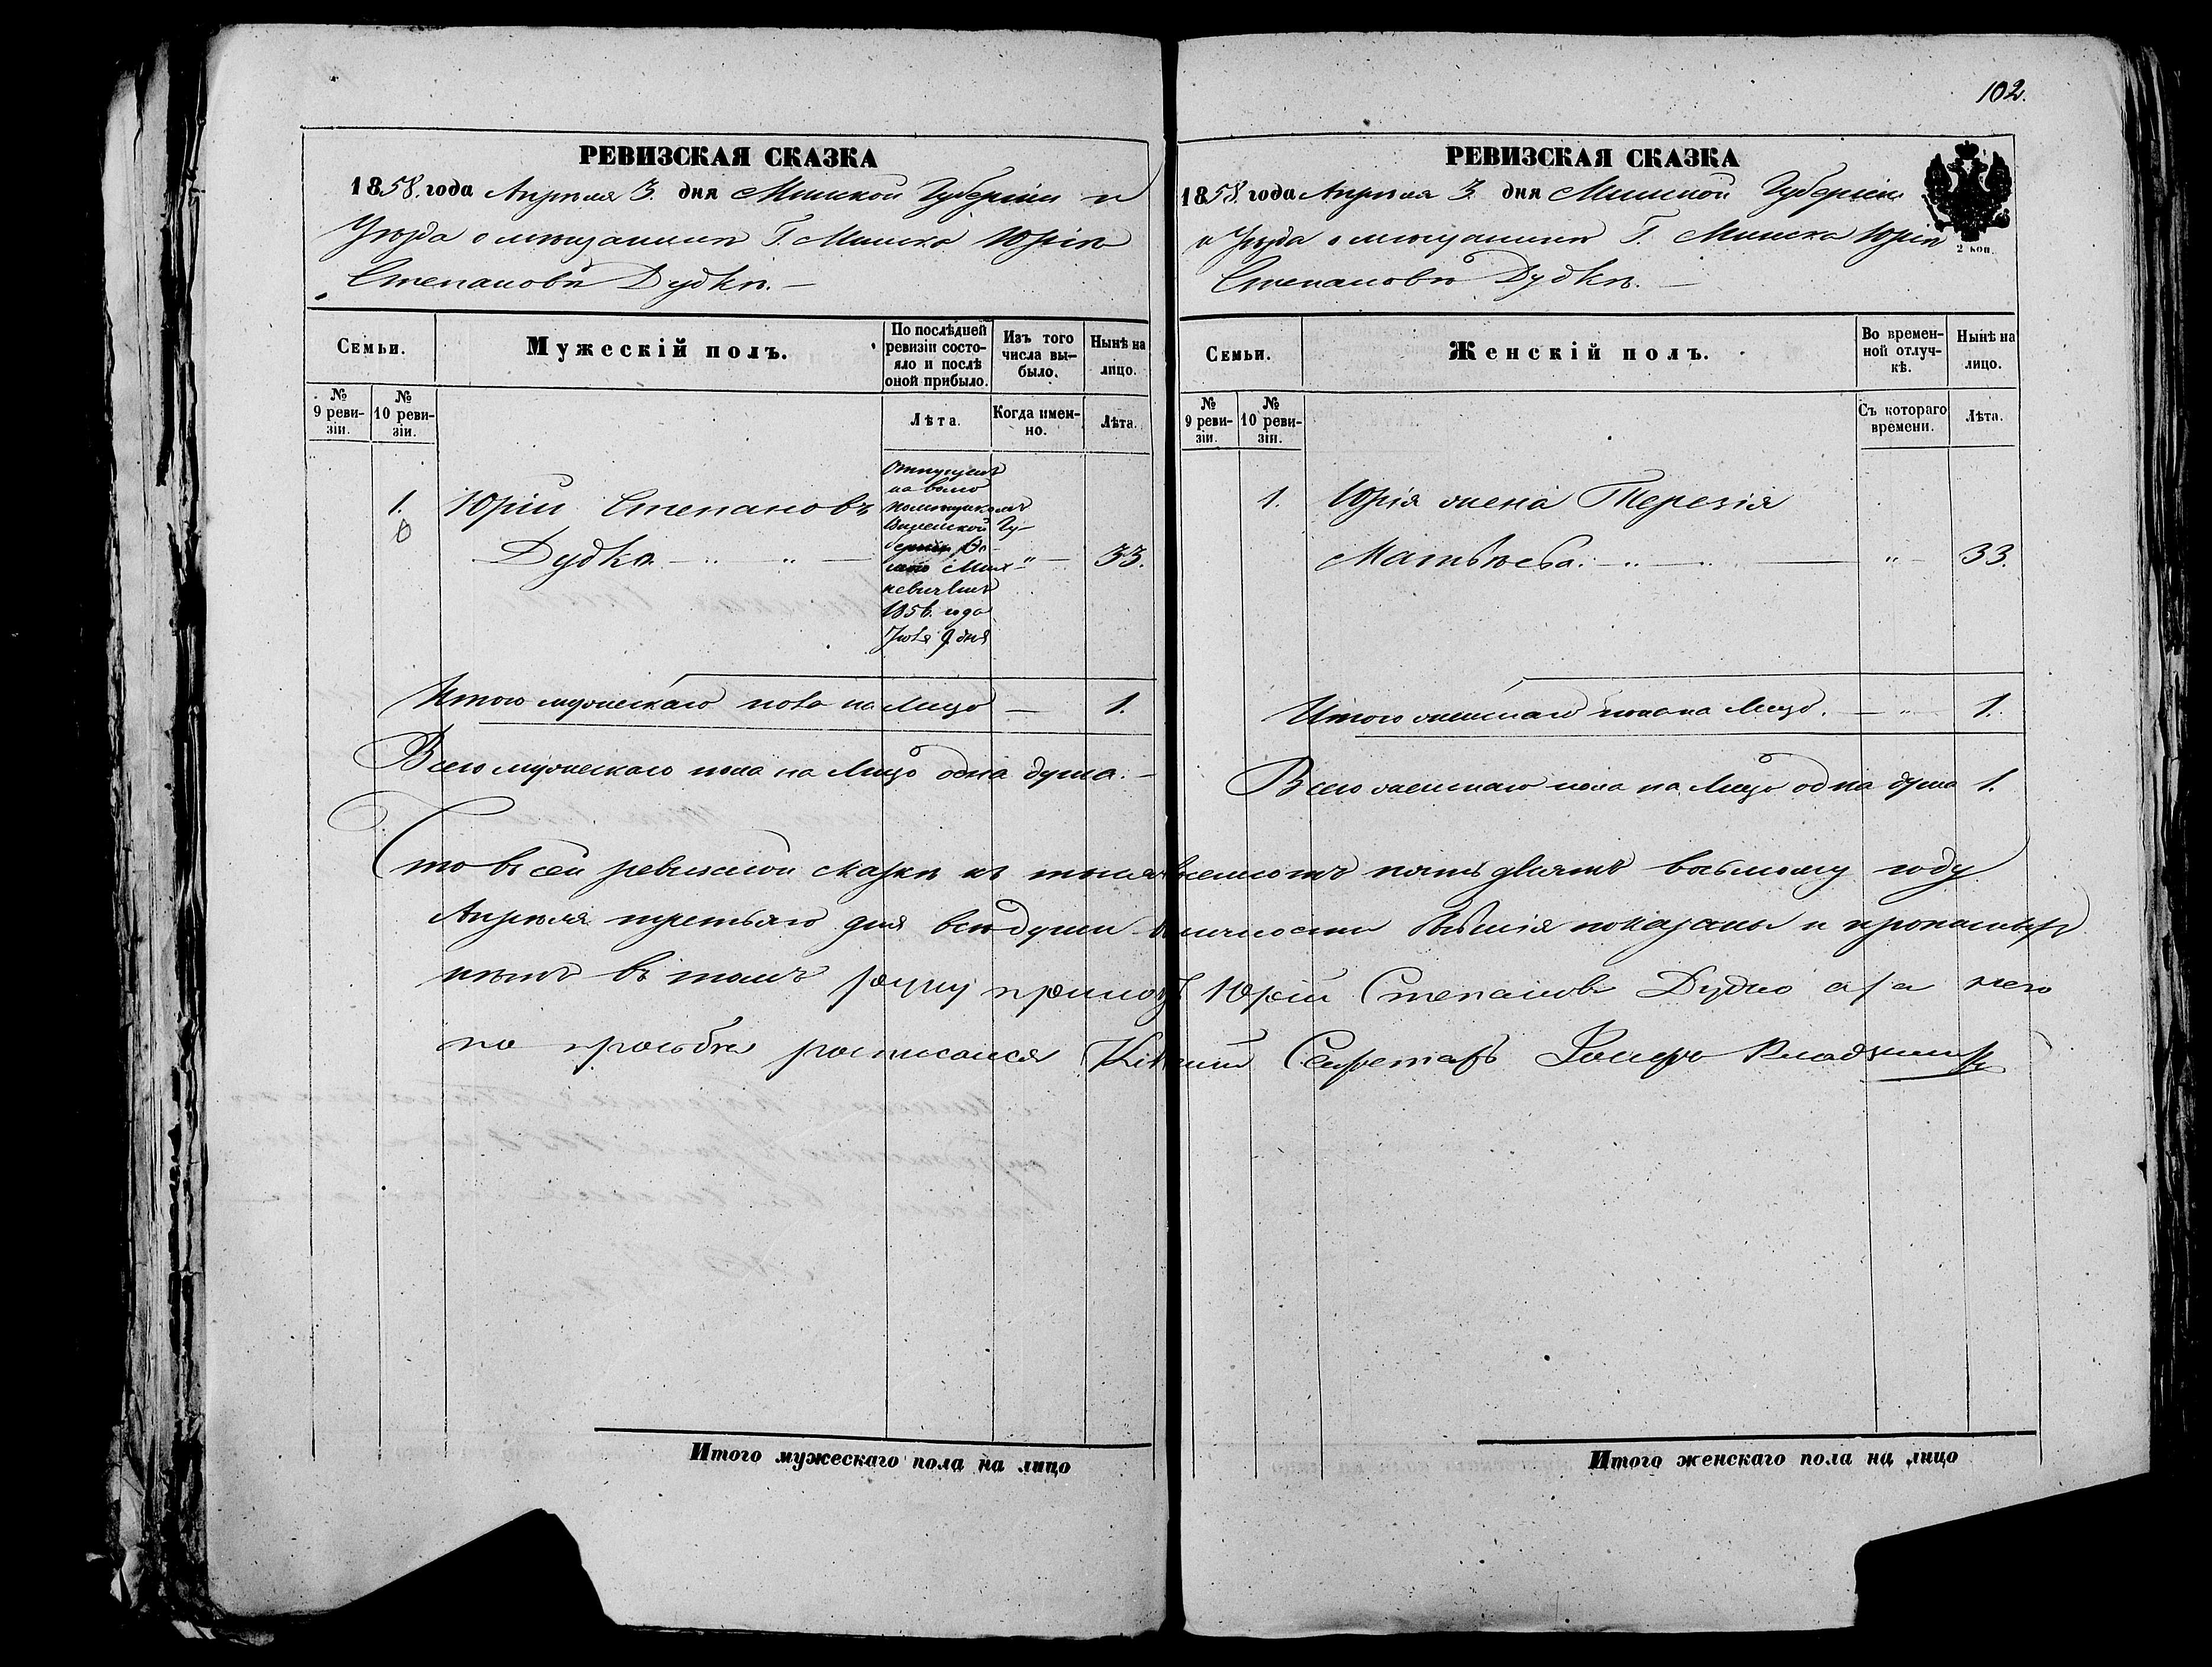 102.
РЕВИЗСКАЯ СКАЗКА
1858. года Апреля 3. дня Минской Губерніи и
Уезда о мещанине Г. Минска Юріе
Степанове Дудке. —
Семьи.
Мужескій полъ.
По послѣдней ревизіи состо-
яло и послѣ оной прибыло.
Изъ того числа вы-
было.
Нынѣ на лицо.
№ 9 реви-
зіи.
№ 10 реви-
зіи.
Лѣта.
Когда имен-
но.
Лѣта.
1. Юрій Степановъ
Дудка — „ — „ — 33.
Отпущенъ
на волю
помещикомъ
Виленской Гу-
берніи
1856. года
9 дня
Итого мужескаго пола на лицо — 1.
Всего мужескаго пола на лицо одна душа. —
РЕВИЗСКАЯ СКАЗКА
1858. года Апреля 3. дня Минской Губерніи
и Уезда о мещанине Г. Минска Юріе
2 коп.
Степанове Дудке. —
Семьи.
Женскій полъ.
Во времен-
ной отлуч-
кѣ.
Нынѣ на лицо.
№ 9 реви-
зіи.
№ 10 реви-
зіи.
Съ котораго времени.
Лѣта.
1. Юрія жена Терезія
Матвѣева. — „ — „ — 33.
Итого женскаго пола на лицо. — „ — 1.
Всего женскаго пола на лицо одна душа 1.
Что въ сей ревизской сказке къ пятьдесятъ восьмому году
Апреля третьяго дня все души въ личности бывшія показаны и
въ томъ руку приложилъ Юрій Степановъ Дудко а за него
по просьбе росписался Секретарь
Итого мужескаго пола на лицо
Итого женскаго пола на лицо